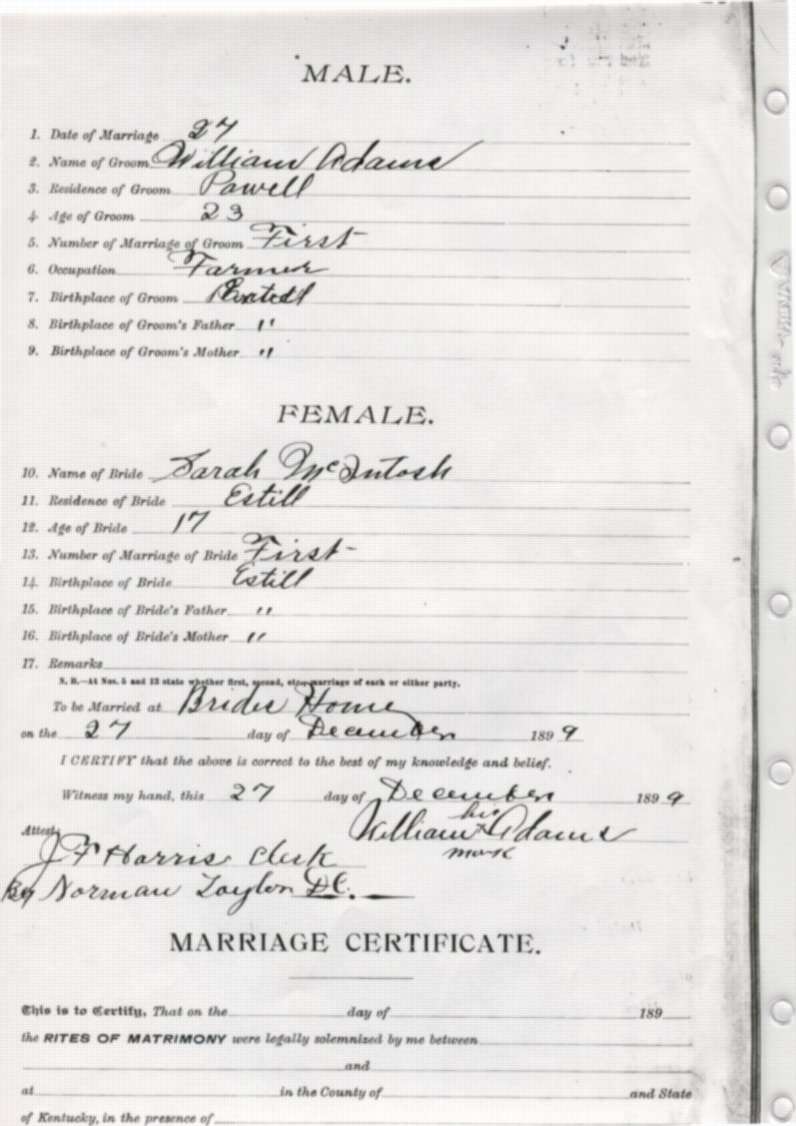 MALE.
1. Date of Marriage 27
2. Name of Groom William Adams
3. Residence of Groom Powell
4. Age of Groom 23
5. Number of Marriage of Groom First
6. Occupation Farmer
7. Birthplace of Groom
8. Birthplace of Groom's Father "
9. Birthplace of Groom's Mother "
FEMALE.
10. Name of Bride Sarah McIntosh
11. Residence of Bride Estill
12. Age of Bride 17
13. Number of Marriage of Bride First
14. Birthplace of Bride Estill
15. Birthplace of Bride's Father "
16. Birthplace of Bride's Mother "
17. Remarks
N. B.—At Nos. 5 and 13 state whether first, second, etc., marriage of each or either party.
To be Married at Brides Home
on the 27 day of December 1899
I CERTIFY that the above is correct to the best of my knowledge and belief.
Witness my hand, this 27 day of December 1899
his
Attest, William x Adams
mark
J F Harris Clerk
By Norman Taylor D C.
MARRIAGE CERTIFICATE.
This is to Certify, That on the day of 189
the RITES OF MATRIMONY were legally solemnized by me between
and
at in the County of and State
of Kentucky, in the presence of